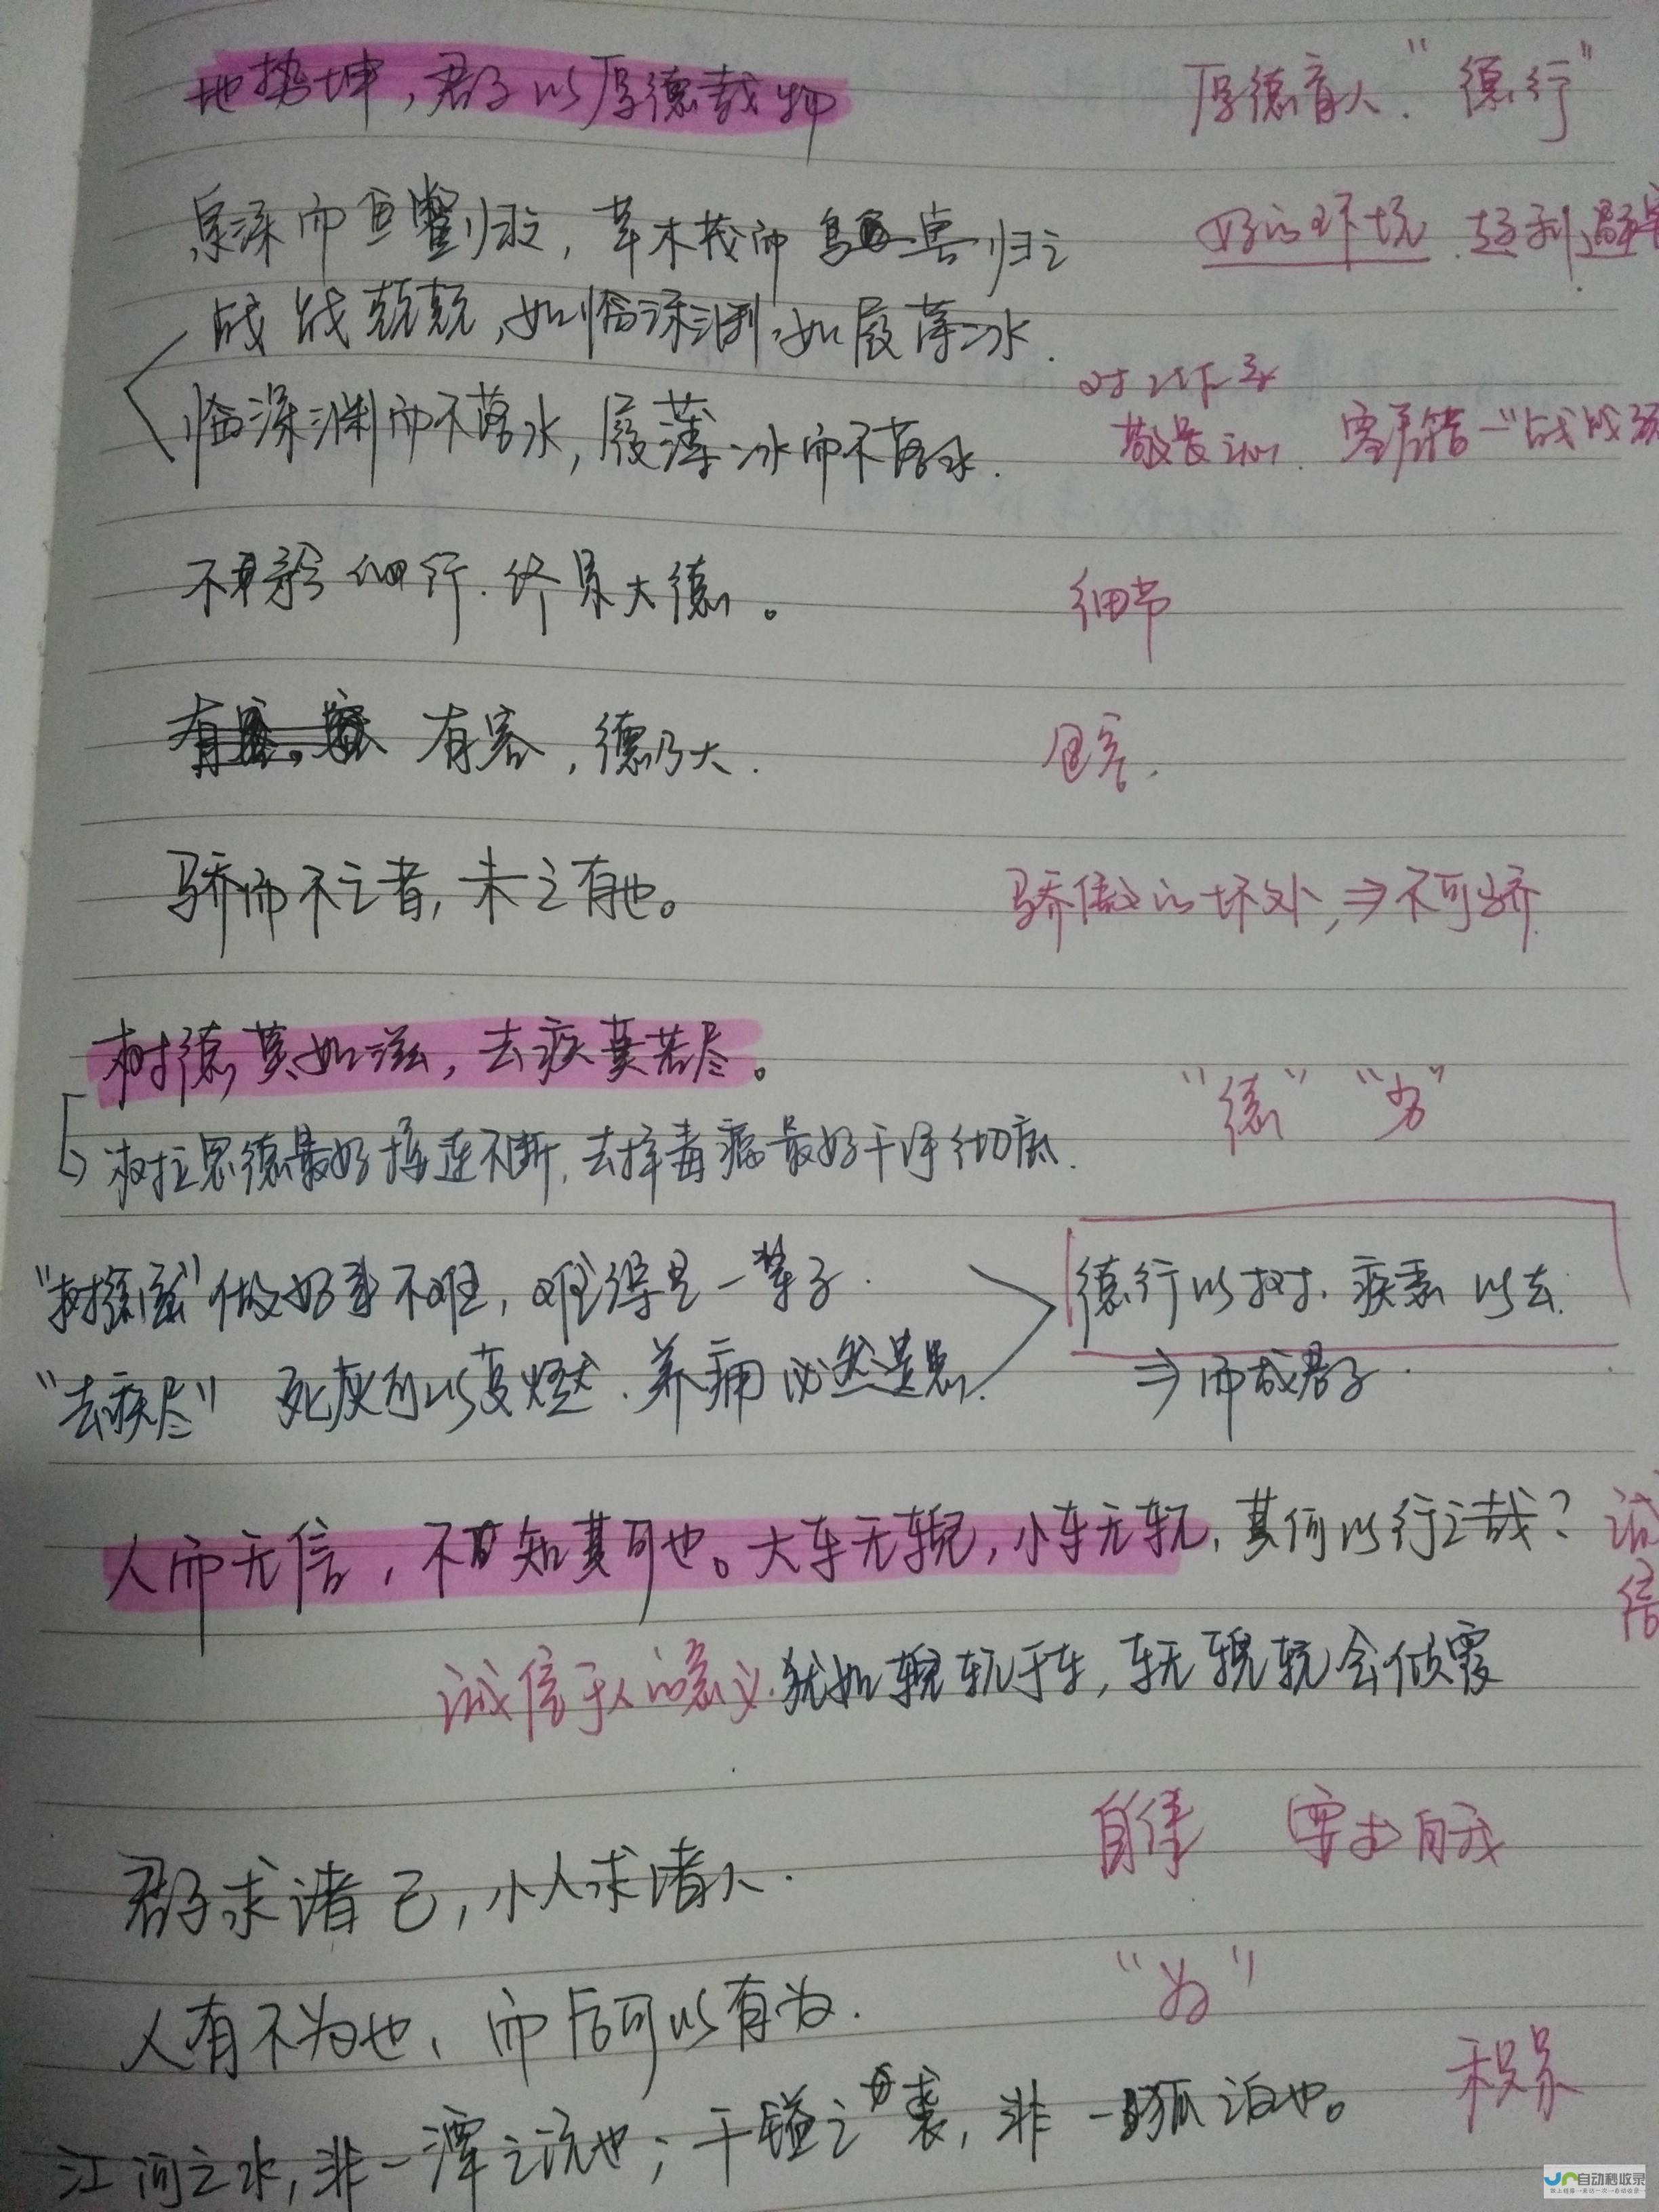 地势坤，君子以厚德载物 厚德育人．"德行"
泉深而鱼鳖归之，草木茂而鸟兽归之 好的环境．趋利避害
战战兢兢，如临深渊，如履薄冰．
临深渊而不落水，履薄冰而不落水． 对工作要
敬畏之心．"战战兢
不矜细行．终累大德。 细节
有容，德乃大． 包容．
骄而不亡者，未之有也。 骄傲的坏处，⇒不可骄．
树德莫如滋，去疾莫若尽。 "德" "务"
树立恩德最好接连不断，去掉毒瘤最好干净彻底．
"树德滋"做好事不难，难得是一辈子．
"去疾尽" 死灰可以复燃．养痈必然是患．
德行以树．疾患以去．
⇒而成君子．
人而无信，不知其可也。大车无輗，小车无軏，其何以行之哉？ 诚信
诚信于人的意义．犹如輗軏于车，车无輗軏会倾覆
自律 要求自我
君子求诸己，小人求诸人．
"为"
人有不为也，而后可以有为．
积累
江河之水，非一源之流也；千镒之裘，非一狐之白也。
自动秒收录